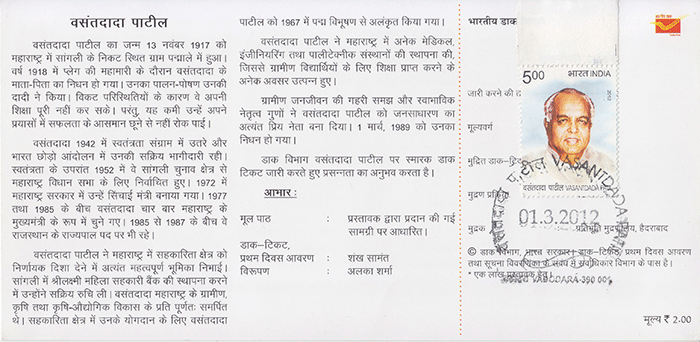 वसंतदादा पाटील
वसंतदादा पाटील का जन्म 13 नवंबर 1917 को
महाराष्ट्र में सांगली के निकट स्थित ग्राम पद्माले में हुआ।
वर्ष 1918 में प्लेग की महामारी के दौरान वसंतदादा के
माता-पिता का निधन हो गया। उनका पालन-पोषण उनकी
दादी ने किया। विकट परिस्थितियों के कारण वे अपनी
शिक्षा पूरी नहीं कर सके। परंतु, यह कभी उन्हें अपने
प्रयासों में सफलता के आसमान छूने से नहीं रोक पाई।
वसंतदादा 1942 में स्वतंत्रता संग्राम में उतरे और
भारत छोड़ो आंदोलन में उनकी सक्रिय भागीदारी रही।
स्वतंत्रता के उपरांत 1952 में वे सांगली चुनाव क्षेत्र से
महाराष्ट्र विधान सभा के लिए निर्वाचित हुए। 1972 में
महाराष्ट्र सरकार में उन्हें सिंचाई मंत्री बनाया गया। 1977
तथा 1985 के बीच वसंतदादा चार बार महाराष्ट्र के
मुख्यमंत्री के रूप में चुने गए। 1985 से 1987 के बीच वे
राजस्थान के राज्यपाल पद पर भी रहे।
वसंतदादा पाटील ने महाराष्ट्र में सहकारिता क्षेत्र को
निर्णायक दिशा देने में अत्यंत महत्वपूर्ण भूमिका निभाई।
सांगली में श्रीलक्ष्मी महिला सहकारी बैंक की स्थापना करने
में उन्होंने सक्रिय रुचि ली। वसंतदादा महाराष्ट्र के ग्रामीण,
कृषि तथा कृषि-औद्योगिक विकास के प्रति पूर्णतः समर्पित
थे। सहकारिता क्षेत्र में उनके योगदान के लिए वसंतदादा
पाटील को 1967 में पद्म विभूषण से अलंकृत किया गया।
वसंतदादा पाटील ने महाराष्ट्र में अनेक मेडिकल,
इंजीनियरिंग तथा पालीटेक्नीक संस्थानों की स्थापना की,
जिससे ग्रामीण विद्यार्थियों के लिए शिक्षा प्राप्त करने के
अनेक अवसर उत्पन्न हुए।
ग्रामीण जनजीवन की गहरी समझ और स्वाभाविक
नेतृत्व गुणों ने वसंतदादा पाटील को जनसाधारण का
अत्यंत प्रिय नेता बना दिया। 1 मार्च, 1989 को उनका
निधन हो गया।
डाक विभाग वसंतदादा पाटील पर स्मारक डाक
टिकट जारी करते हुए प्रसन्नता का अनुभव करता है।
आभार :
मूल पाठ : प्रस्तावक द्वारा प्रदान की गई
सामग्री पर आधारित।
डाक-टिकट,
प्रथम दिवस आवरण : शंख सामंत
विरूपण : अलका शर्मा
भारतीय डाक
5.00 भारत INDIA
2012
जारी करने की
मूल्यवर्ग
मुद्रित डाक-टिकट
मुद्रण
वसंतदादा पाटील VASANTDADA
वसंतदादा पाटील VASANTDADA PATIL
01.3.2012
मुद्रक प्रतिभूति मुद्रणालय, हैदराबाद
© डाक विभाग, भारत सरकार। डाक-टिकट, प्रथम दिवस आवरण
तथा सूचना विवरणिका के संबंध में सर्वाधिकार विभाग के पास है।
* एक लाख
VADODARA-390 001
मूल्य ₹ 2.00